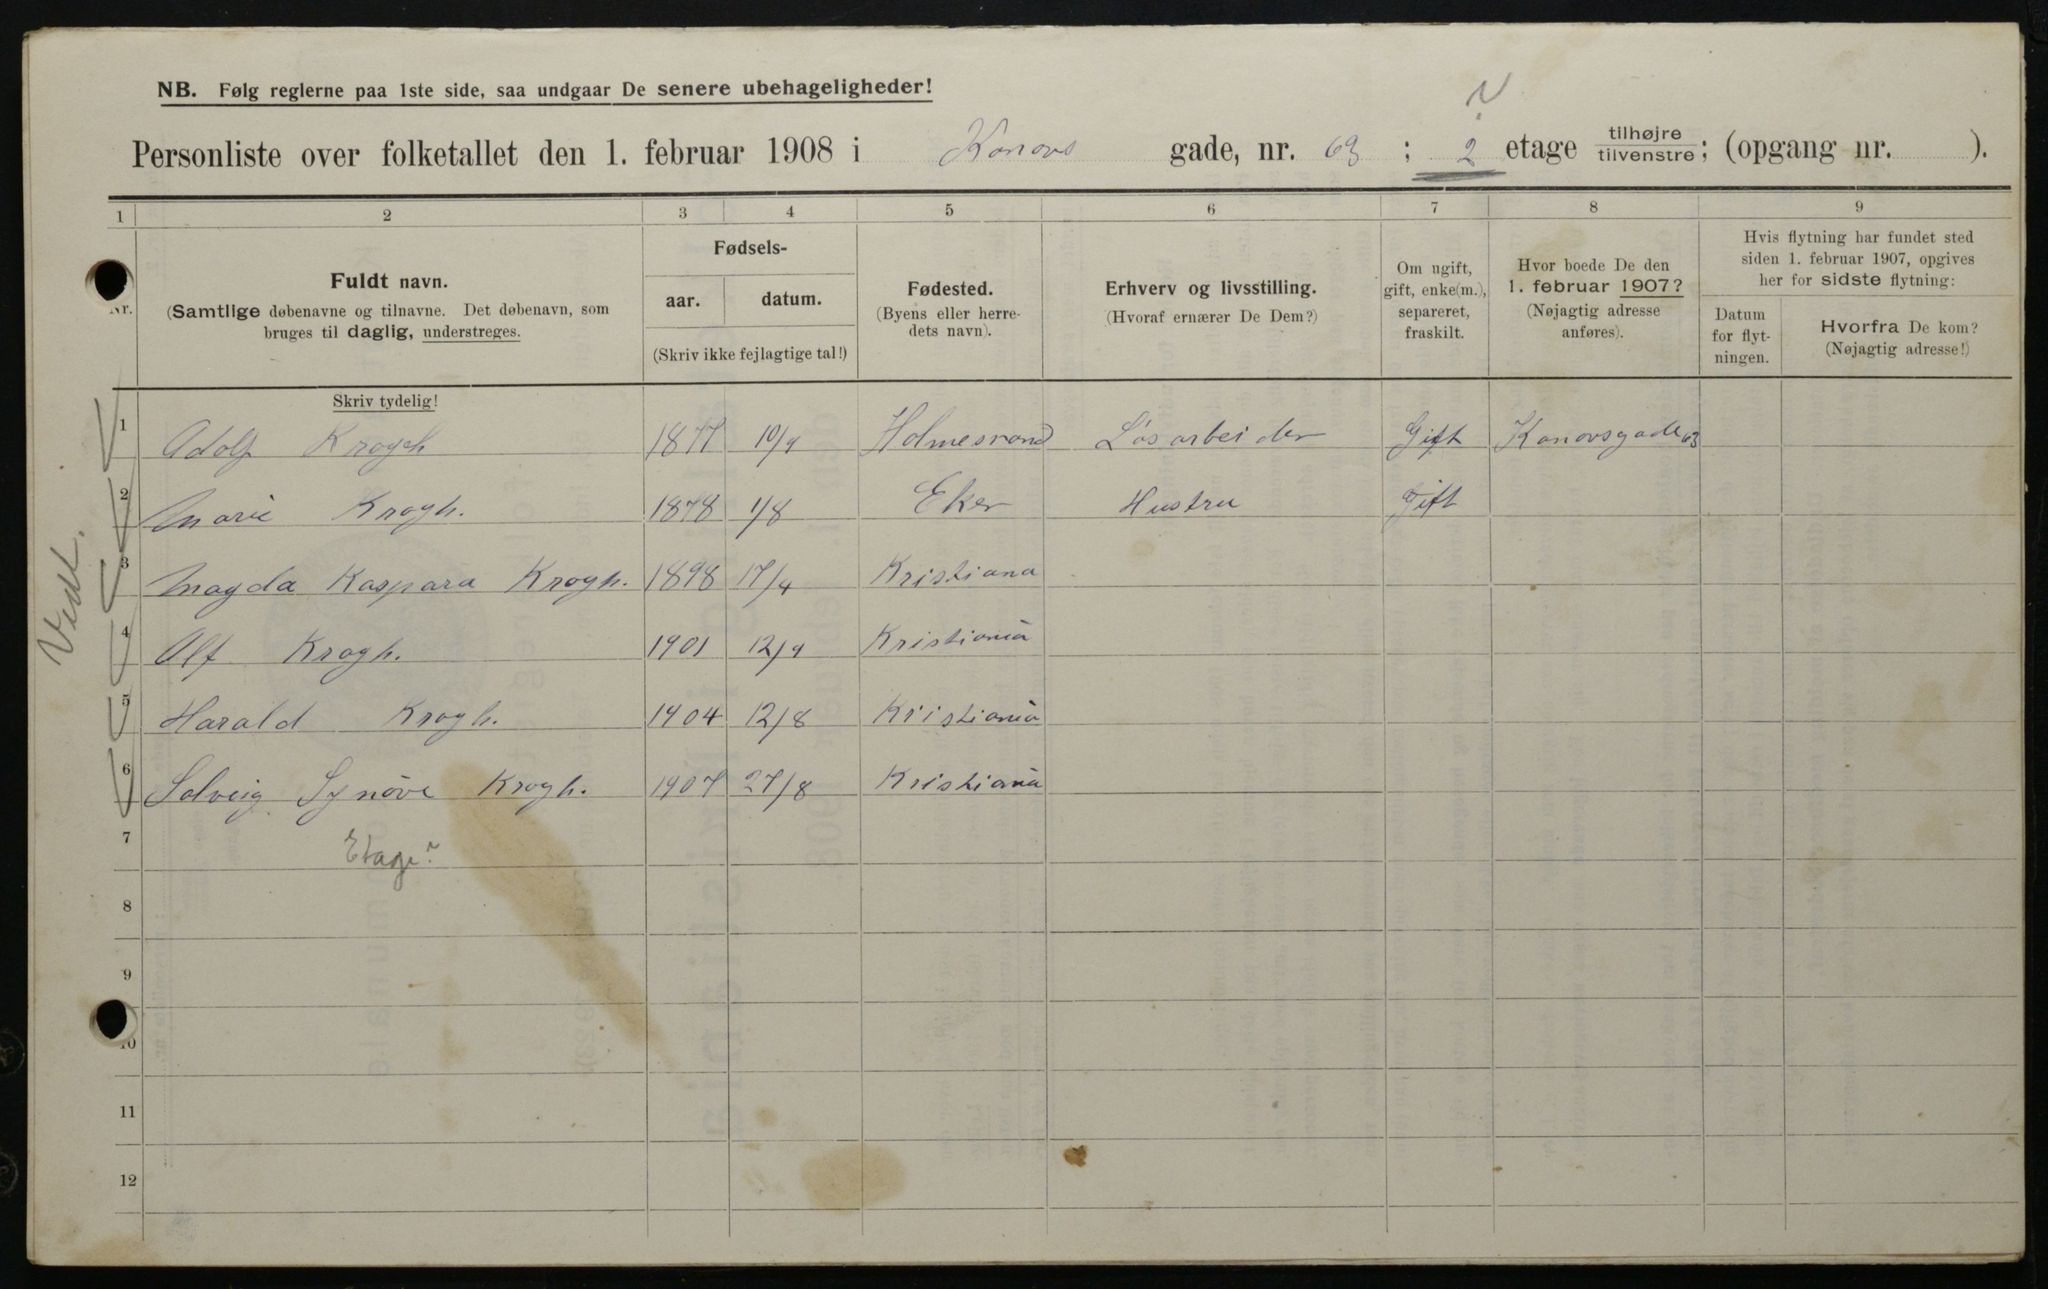 NB. Følg reglerne paa 1ste side, saa undgaar De senere ubehageligheder!
Personliste over folketallet den 1. februar 1908 i Konows gade, nr. 63 ; 2 etage tilhøjre tilvenstre; (opgang nr. ).
1 2 3 4 5 6 7 8 9
Nr.
Fuldt navn.
(Samtlige døbenavne og tilnavne. Det døbenavn, som
bruges til daglig, understreges.
Skriv tydelig!
Fødsels-
aar. datum.
(Skriv ikke fejlagtige tal!)
Fødested.
(Byens eller herre-
dets navn).
Erhverv og livsstilling.
(Hvoraf ernærer De Dem?)
Om ugift,
gift, enke(m.),
separeret,
fraskilt.
Hvor boede De den
1. februar 1907?
(Nøjagtig adresse
anføres).
Hvis flytning har fundet sted
siden 1. februar 1907, opgives
her for sidste flytning:
Datum
for flyt-
ningen.
Hvorfra De kom?
(Nøjagtig adresse!)
1 Adolf Krogh 1877 10/9 Holmesrand Løsarbeider Gift Konovsgade 63
2 Marie Krogh. 1878 1/8 Eker Hustru Gift
3 Magda Kaspara Krogh. 1898 17/4 Kristiana
4 Alf Krogh. 1901 12/9 Kristiania
5 Harald Krogh. 1904 12/8 Kristiania
6 Solveig Synöve Krogh. 1907 27/8 Kristiania
7 Etage?
8
9
10
11
12